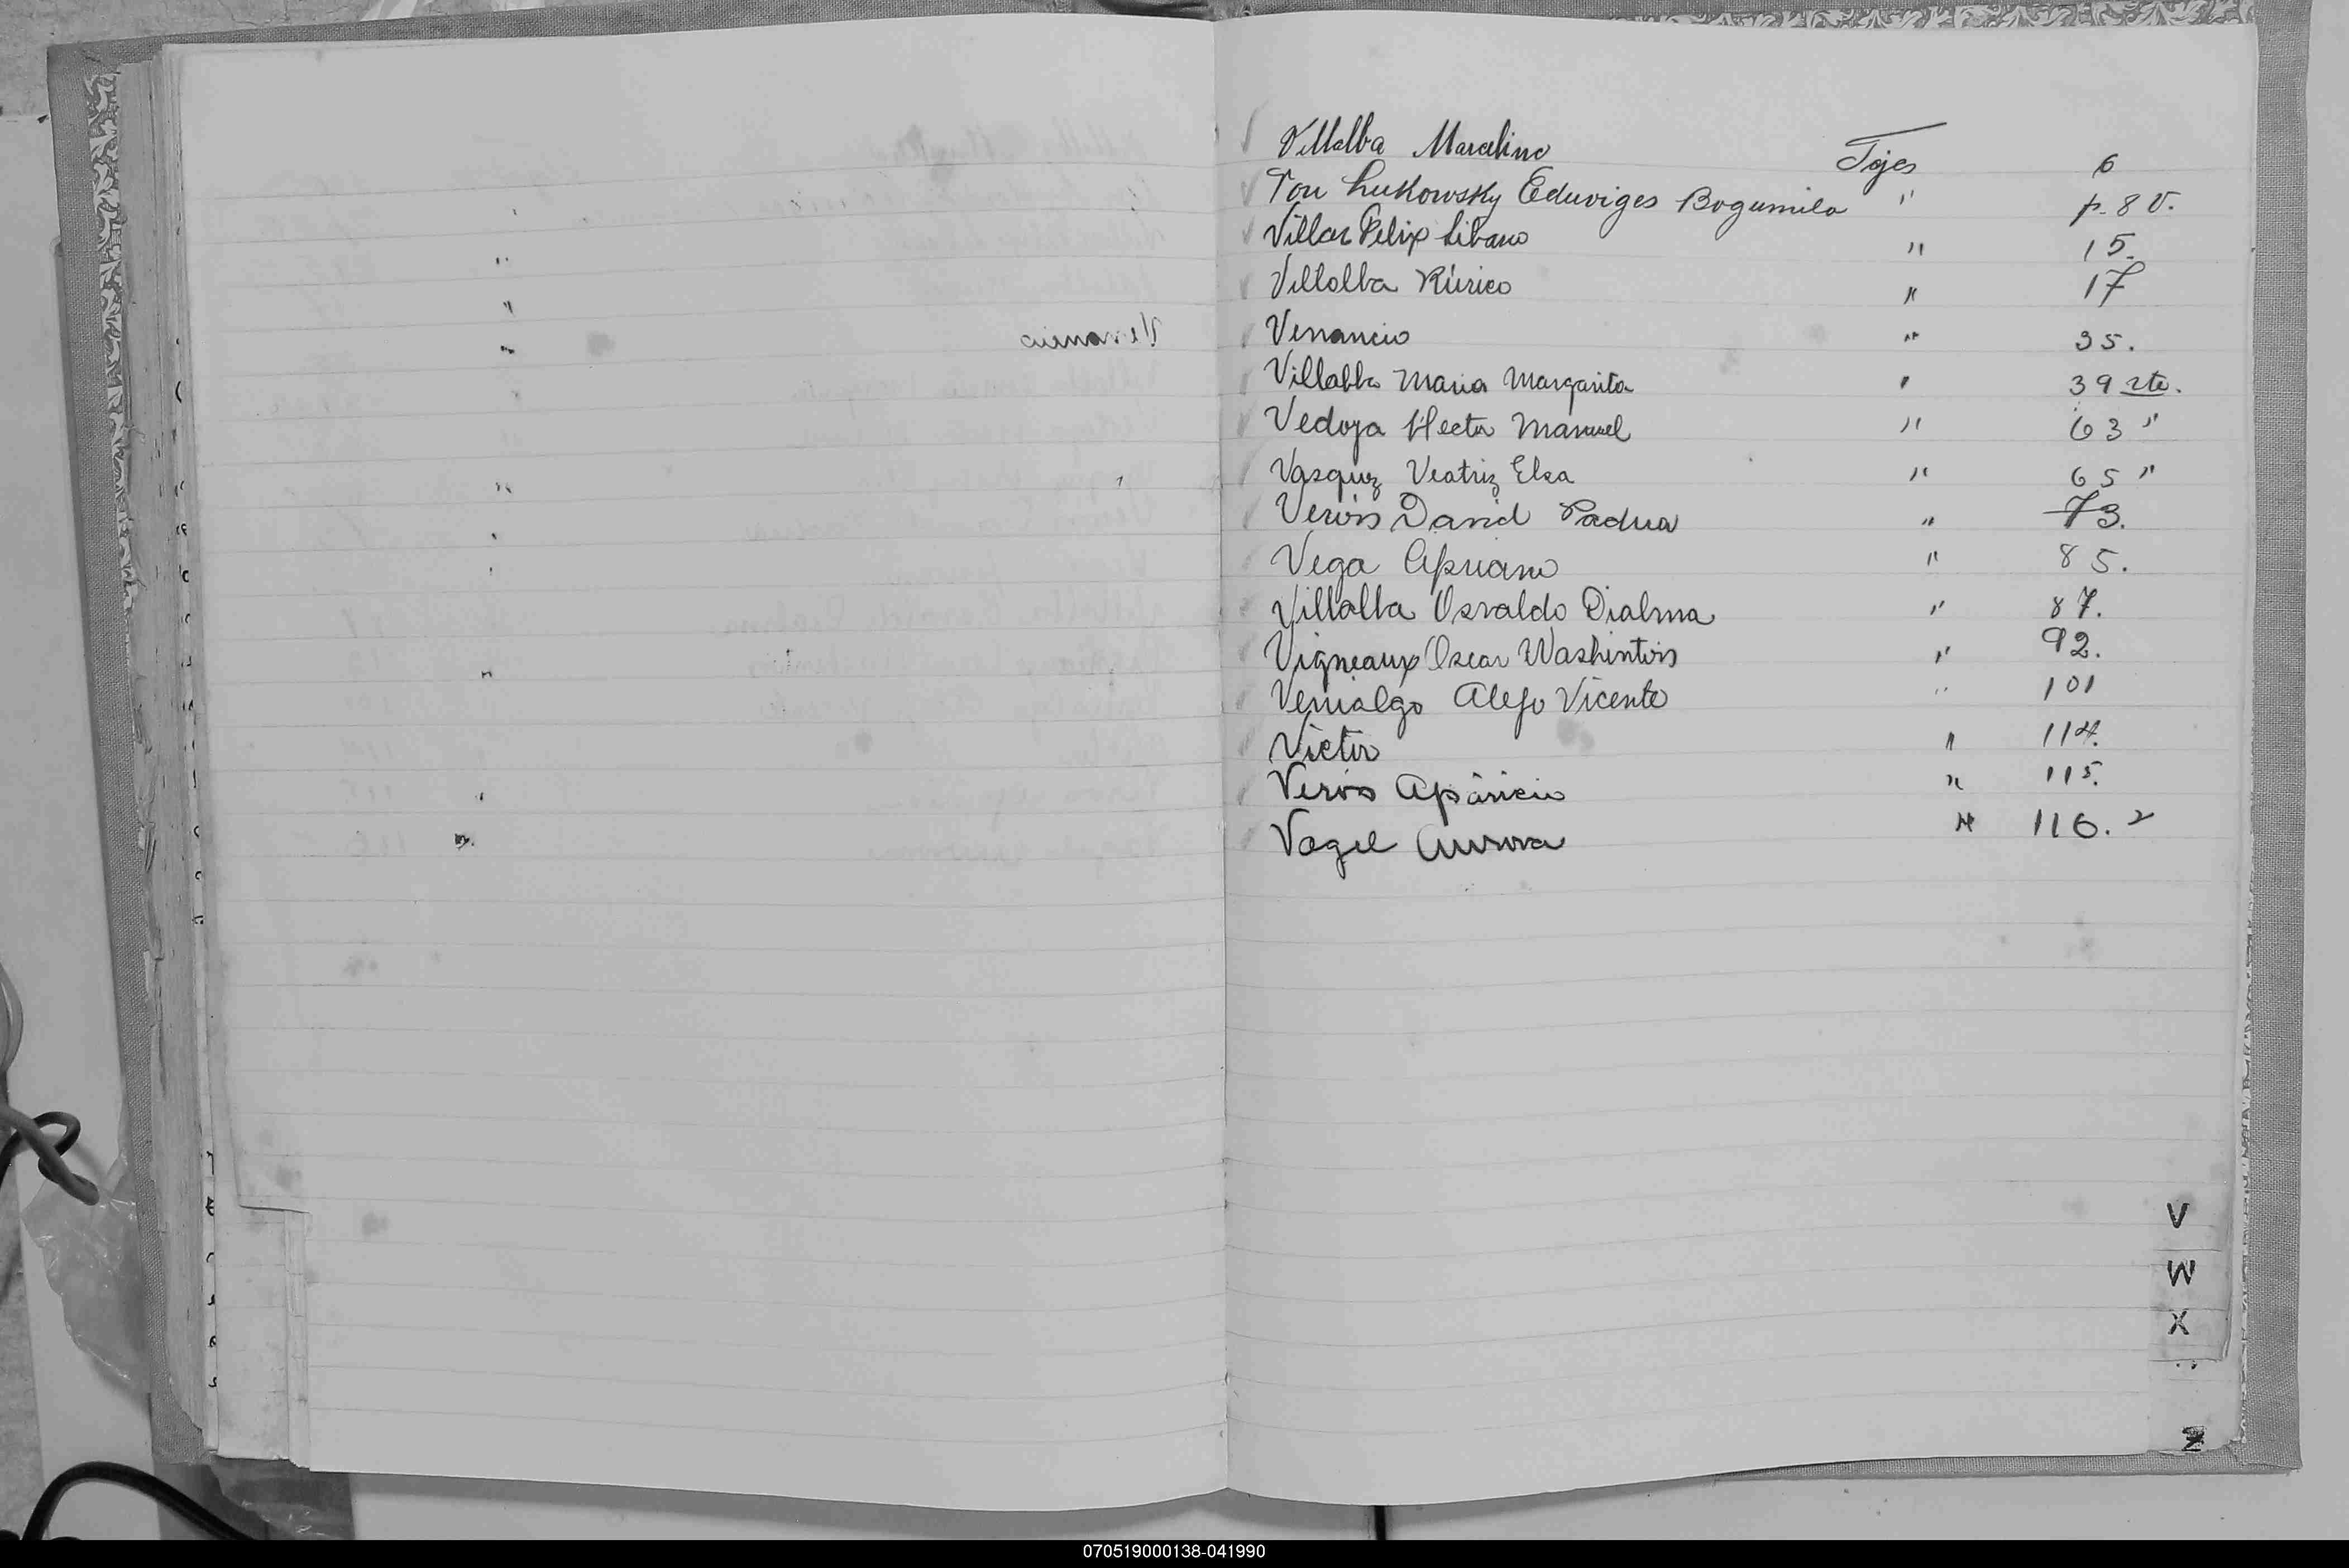 Villalba Marcelino Fojas 6
Von Lukowsky Eduviges Bogumila " p. 8 v.
Villar Felix Libano " 15.
Villalba Rúrico " 17
Venancio " 35.
Villalba Maria Margarita " 39 vta.
Vedoya Hector Manuel " 63 "
Vasquez Veatriz Elsa " 65 "
Verón David Padua " 73.
Vega Cipriano " 85.
Villalba Osvaldo Dialma " 87.
Vigneaux Oscar Washinton " 92.
Venialgo Alejo Vicente " 101
Victor " 114.
Verón Aparicio " 115.
Vogel Aurora " 116.
V
W
X
Z
070519000138-041990